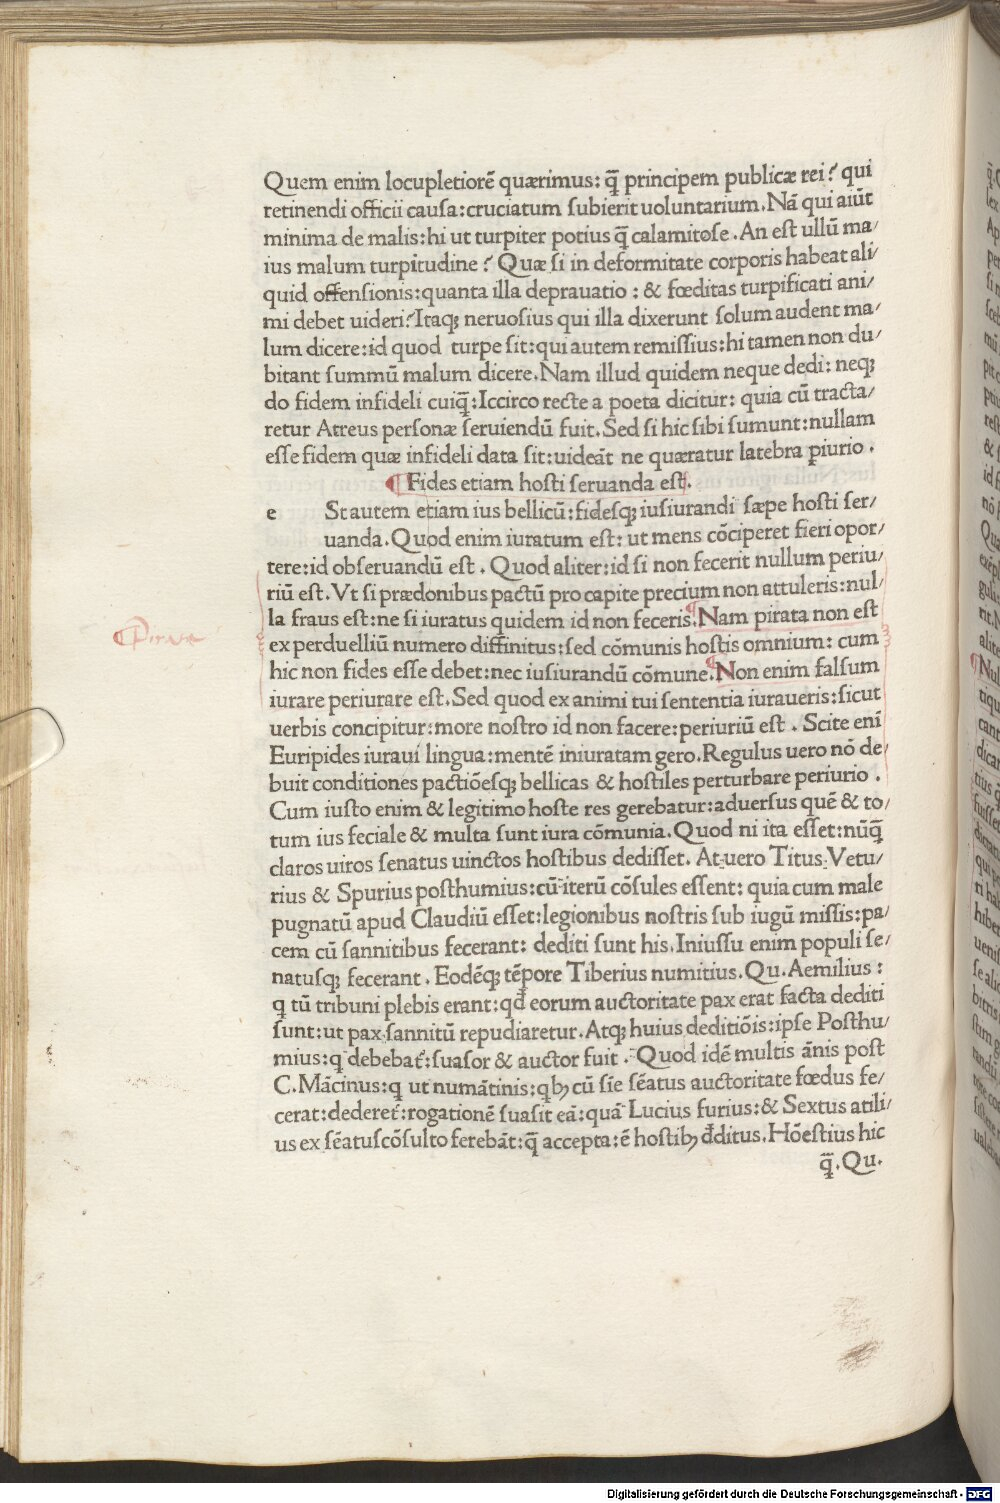 Quem enim locupletiorē quærimus: q̄ principem publicæ rei? qui
retinendi officii causa: cruciatum subierit uoluntarium. Nā qui aiūt
minima de malis: hi ut turpiter potius q̄ calamitose. An est ullū ma/
ius malum turpitudine? Quæ si in deformitate corporis habeat ali/
quid offensionis: quanta illa deprauatio: & fœditas turpificati ani/
mi debet uideri? Itaqꝫ neruosius qui illa dixerunt solum audent ma/
lum dicere: id quod turpe sit: qui autem remissius: hi tamen non du/
bitant summū malum dicere. Nam illud quidem neque dedi: neqꝫ
do fidem infideli cuiq̄: Iccirco recte a poeta dicitur: quia cū tracta/
retur Atreus personæ seruiendū fuit. Sed si hic sibi sumunt: nullam
esse fidem quæ infideli data sit: uideāt ne quæratur latebra piurio.
Fides etiam hosti seruanda est.
e St autem etiam ius bellicū: fidesqꝫ iusiurandi sæpe hosti ser/
uanda. Quod enim iuratum est: ut mens cōciperet fieri opor/
tere: id obseruandū est. Quod aliter: id si non fecerit nullum periu/
riū est. Vt si prædonibus pactū pro capite precium non attuleris: nul/
la fraus est: ne si iuratus quidem id non feceris. Nam pirata non est
ex perduelliū numero diffinitus: sed cōmunis hostis omnium: cum
hic non fides esse debet: nec iusiurandū cōmune. Non enim falsum
iurare periurare est. Sed quod ex animi tui sententia iuraueris: sicut
uerbis concipitur: more nostro id non facere: periuriū est. Scite enī
Euripides iuraui lingua: mentē iniuratam gero. Regulus uero nō de/
buit conditiones pactiōesqꝫ bellicas & hostiles perturbare periurio.
Cum iusto enim & legitimo hoste res gerebatur: aduersus quē & to/
tum ius feciale & multa sunt iura cōmunia. Quod ni ita esset: nūq̄
claros uiros senatus uinctos hostibus dedisset. At uero Titus Vetu/
rius & Spurius posthumius: cū iterū cōsules essent: quia cum male
pugnatū apud Claudiū esset: legionibus nostris sub iugū missis: pa/
cem cū sannitibus fecerant: dediti sunt his. Iniussu enim populi se/
natusqꝫ fecerant. Eodēqꝫ tēpore Tiberius numitius. Qu. Aemilius:
q tū tribuni plebis erant: qđ eorum auctoritate pax erat facta dediti
sunt: ut pax sannitū repudiaretur. Atqꝫ huius deditiōis: ipse Posthu/
mius: q debebat̄: suasor & auctor fuit. Quod idē multis ānis post
C. Mācinus: q ut numātinis: qbꝫ cū sie sēatus auctoritate fœdus fe/
cerat: dederet̄: rogationē suasit eā: quā Lucius furius: & Sextus atili/
us ex sēatuscōsulto ferebāt: q̄ accepta: ē hostibꝫ đditus. Hōestius hic
q̄. Qu.
Digitalisierung gefördert durch die Deutsche Forschungsgemeinschaft - DFG